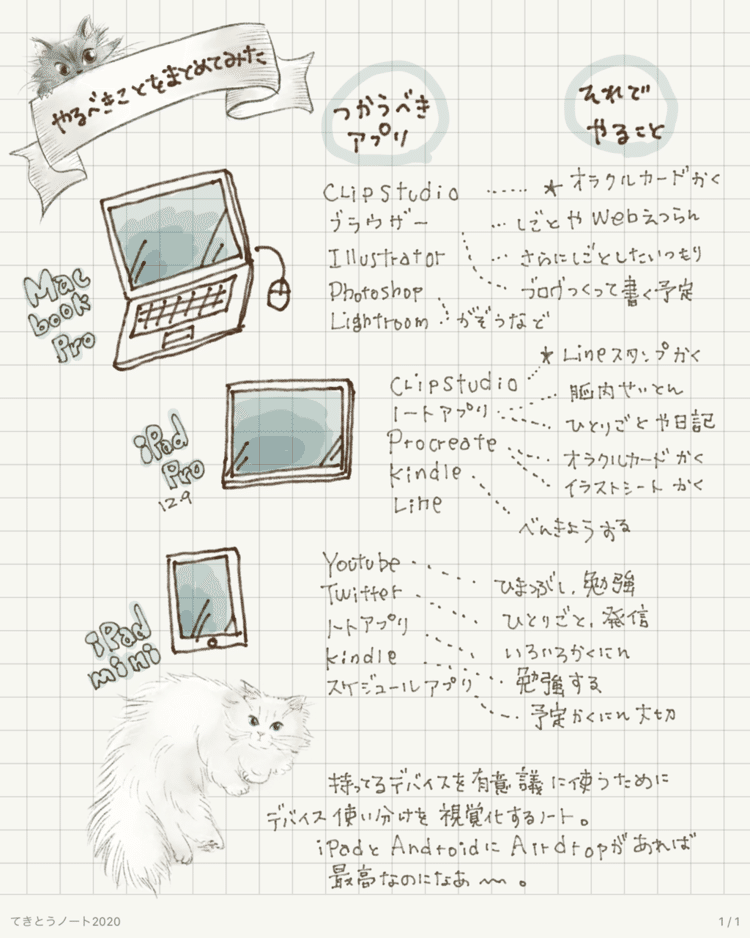 やるべきことをまとめてみた
つかうべき
アプリ
それで
やること
Mac
book
Pro
CLIP Studio ...... ★ オラクルカードかく
ブラウザー ... しごとや Webえつらん
Illustrator ... さらにしごとしたいつもり
Photoshop ブログつくって書く予定
Lightroom がぞうなど
iPad
Pro
12.9
CLIP Studio ★ Lineスタンプかく
ノートアプリ 脳内せいとん
ひとりごとや日記
Procreate オラクルカードかく
イラストシートかく
kindle べんきょうする
Line
iPad
mini
Youtube ひまつぶし, 勉強
Twitter ひとりごと, 発信
ノートアプリ いろいろかくにん
kindle 勉強する
スケジュールアプリ 予定かくにん 大切
持ってるデバイスを有意議に使うために
デバイス使い分けを視覚化するノート。
iPadとAndroidにAirdropがあれば
最高なのになあ〜。
てきとうノート2020
1 / 1